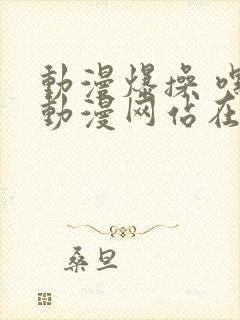 動漫爆操 嘿
動漫网佔在
桑旦